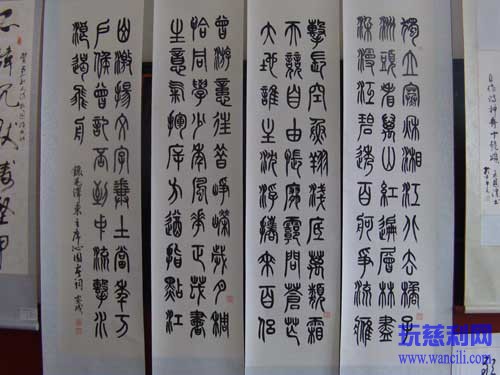 獨立寒秋湘江北去橘子
洲頭看萬山紅遍層林盡
染漫江碧透百舸爭流鷹
擊長空魚翔淺底萬類霜
天競自由悵寥廓問蒼茫
大地誰主沈浮攜來百侶
曾游憶往昔崢嶸歲月稠
恰同學少年風華正茂書
生意氣揮斥方遒指點江
山激揚文字糞土當年萬
戶侯曾記否到中流擊水
浪遏飛舟
錄毛澤東主席沁園春詞
玩慈利网
www.wancili.com